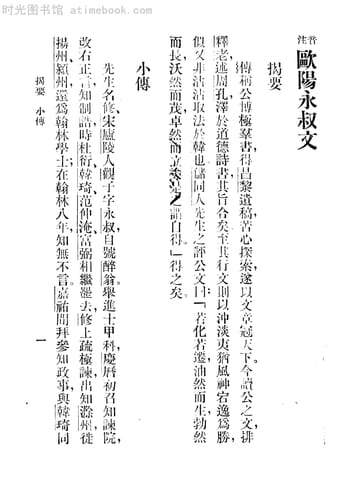 时光图书馆 atimebook.com
音注 歐陽永叔文
揭要
傳稱公博極羣書得昌黎遺稿苦心探索遂以文章冠天下今讀公之文排
釋老述周孔澤於道德詩書其旨合矣至其行文則以沖淡夷猶風神宕逸爲勝
似又非沾沾取法於韓也儲同人先生之評公文曰若化若遷油然而生勃然
而長沃然而茂卓然而立柰是之謂自得得之矣
小傳
先生名修宋廬陵人觀子字永叔自號醉翁舉進士甲科慶曆初召知諫院
改右正言知制誥時杜衍韓琦范仲淹富弼相繼罷去修上疏極諫出知滁州徙
揚州潁州還爲翰林學士在翰林八年知無不言嘉祐間拜參知政事與韓琦同
揭要 小傳
一